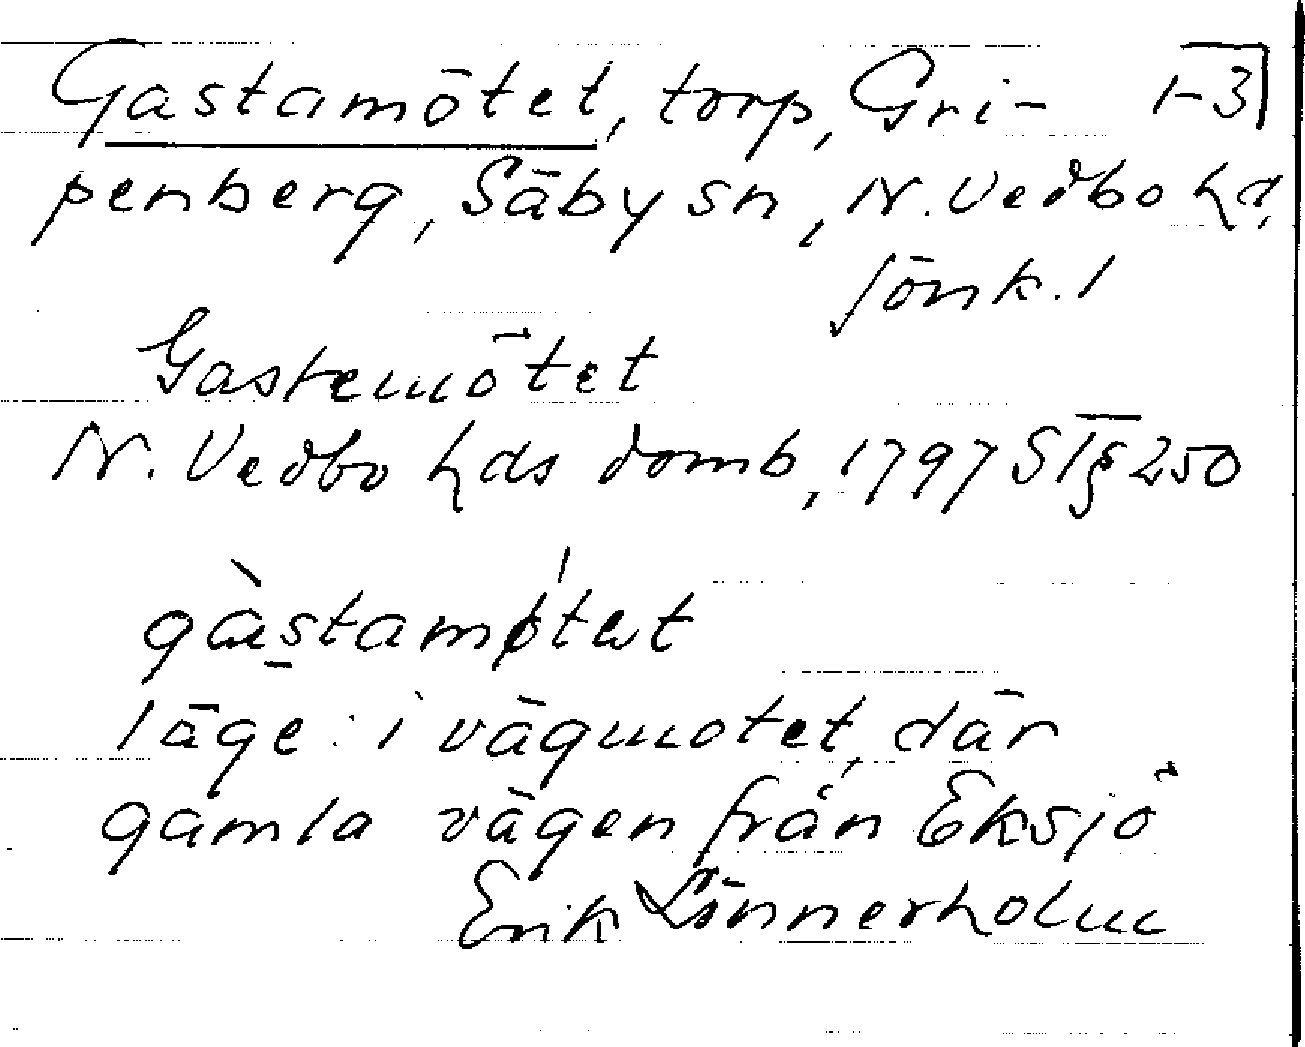 Gastamötet, torp, Gri- 1-3
penberg, Säby sn, N. Vedbo hd,
Jönk. l
Gastemötet
N. Vedbo hds domb, 1797 ST § 250
gàstamøtet
läge: i vägmotet, där
gamla vägen från Eksjö
Erik Lönnerholm